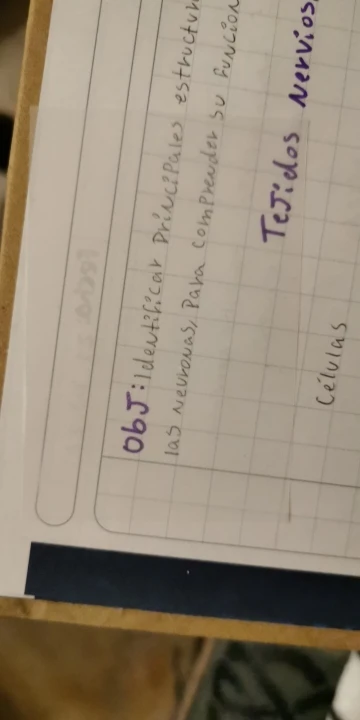 ObJ: Identificar Principales estructur
las neuronas, Para comprender su funcion
Tejidos nervios
Células